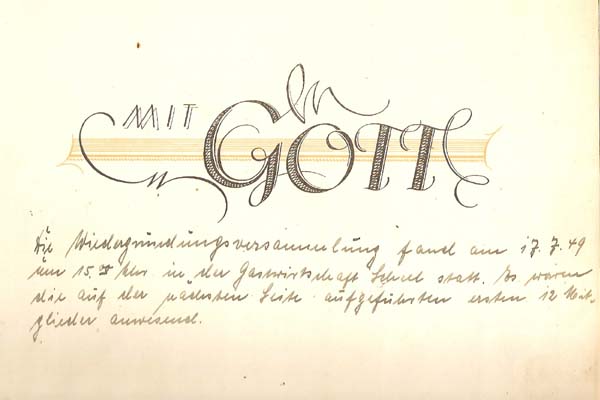 MIT GOTT
Die Wiedergründungsversammlung fand am 17.7.49
um 15.00 Uhr in der Gastwirtschaft statt. Es waren
die auf der nächsten Seite aufgeführten ersten 12 Mit-
glieder anwesend.